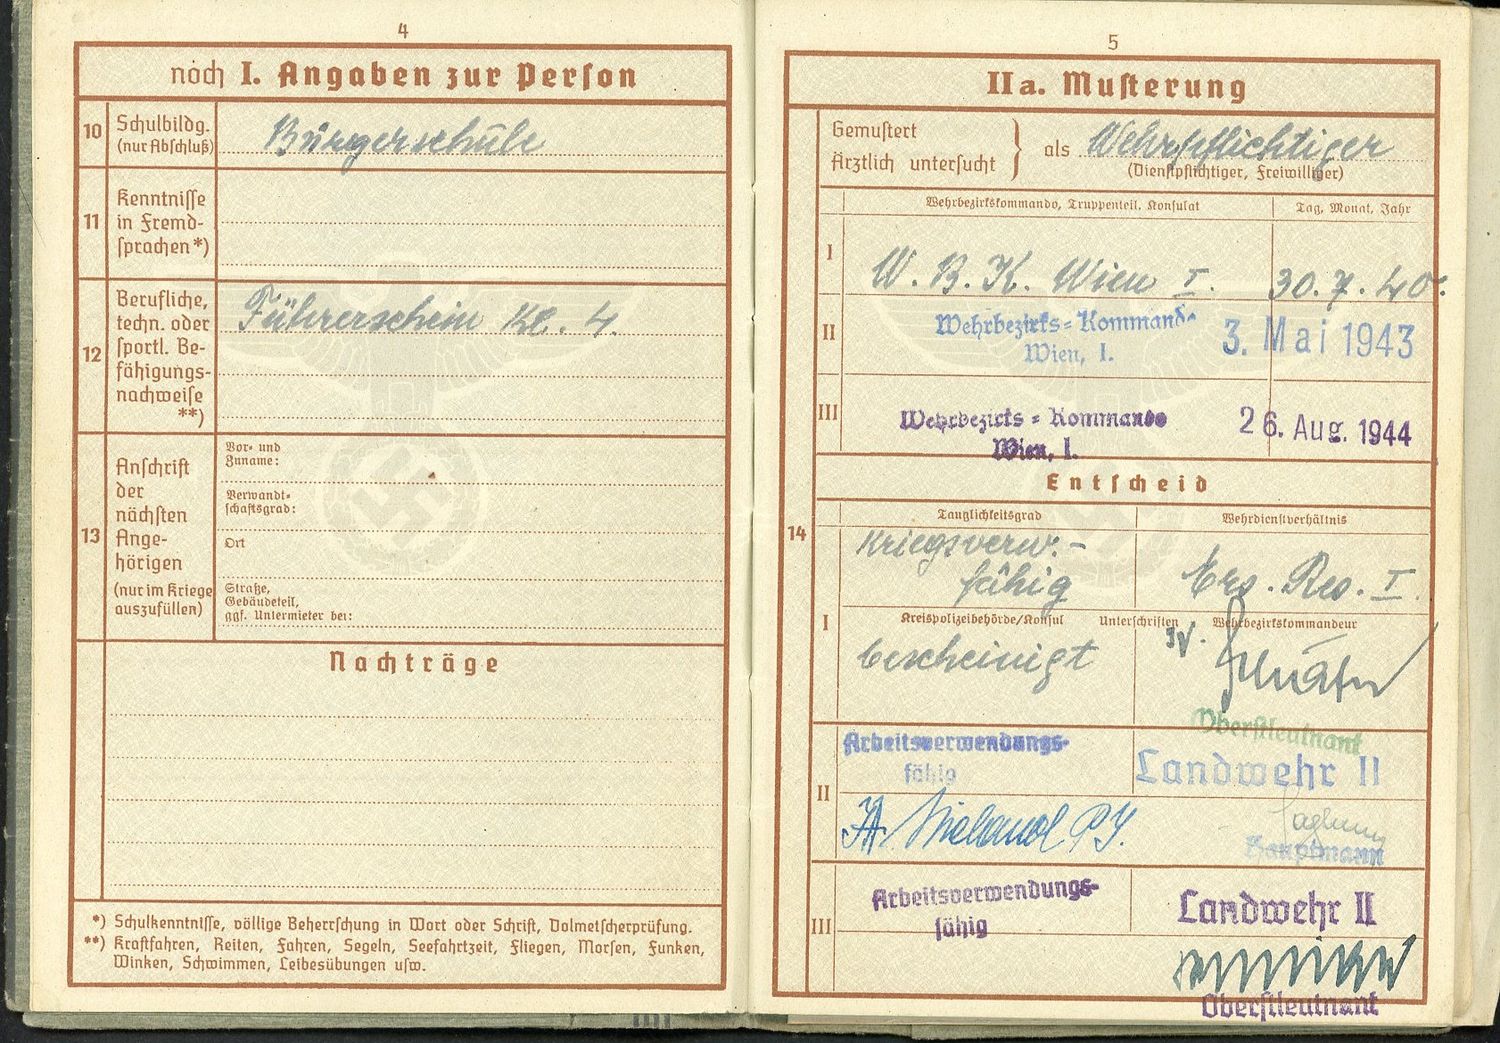 4
noch I. Angaben zur Person
10
Schulbildg.
(nur Abschluß)
Bürgerschule
11
Kenntnisse
in Fremd-
sprachen*)
12
Berufliche,
techn. oder
sportl. Be-
fähigungs-
nachweise
**)
Führerschein Kl. 4.
13
Anschrift
der
nächsten
Ange-
hörigen
(nur im Kriege
auszufüllen)
Vor- und
Zuname:
Verwandt-
schaftsgrad:
Ort
Straße,
Gebäudeteil,
ggf. Untermieter bei:
Nachträge
*) Schulkenntnisse, völlige Beherrschung in Wort oder Schrift, Dolmetscherprüfung.
**) Kraftfahren, Reiten, Fahren, Segeln, Seefahrtzeit, Fliegen, Morsen, Funken,
Winken, Schwimmen, Leibesübungen usw.
5
IIa. Musterung
Gemustert
Ärztlich untersucht } als Wehrpflichtiger
(Dienstpflichtiger, Freiwilliger)
Wehrbezirkskommando, Truppenteil, Konsulat
Tag, Monat, Jahr
I
W. B. K. Wien I.
30. 7. 40.
II
Wehrbezirks=Kommando
Wien, I.
3. Mai 1943
III
Wehrbezirks=Kommando
Wien, I.
26. Aug. 1944
Entscheid
14
Tauglichkeitsgrad
Wehrdienstverhältnis
I
Kriegsverw.-
fähig
Ers. Res. I.
Kreispolizeibehörde/Konsul Unterschriften Wehrbezirkskommandeur
bescheinigt
Oberstleutnant
II
Arbeitsverwendungs-
fähig
Landwehr II
Hauptmann
III
Arbeitsverwendungs-
fähig
Landwehr II
Oberstleutnant